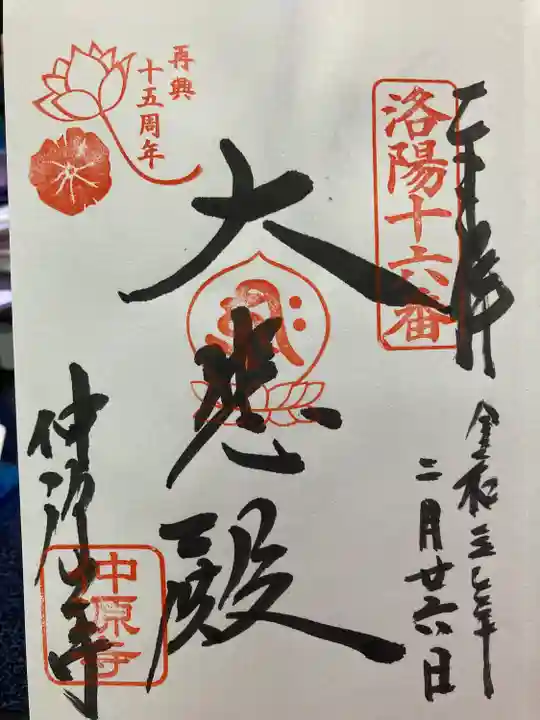 奉拝
洛陽十六番
令和三年
二月廿六日
再興
十五周年
大悲殿
仲源寺
中原寺